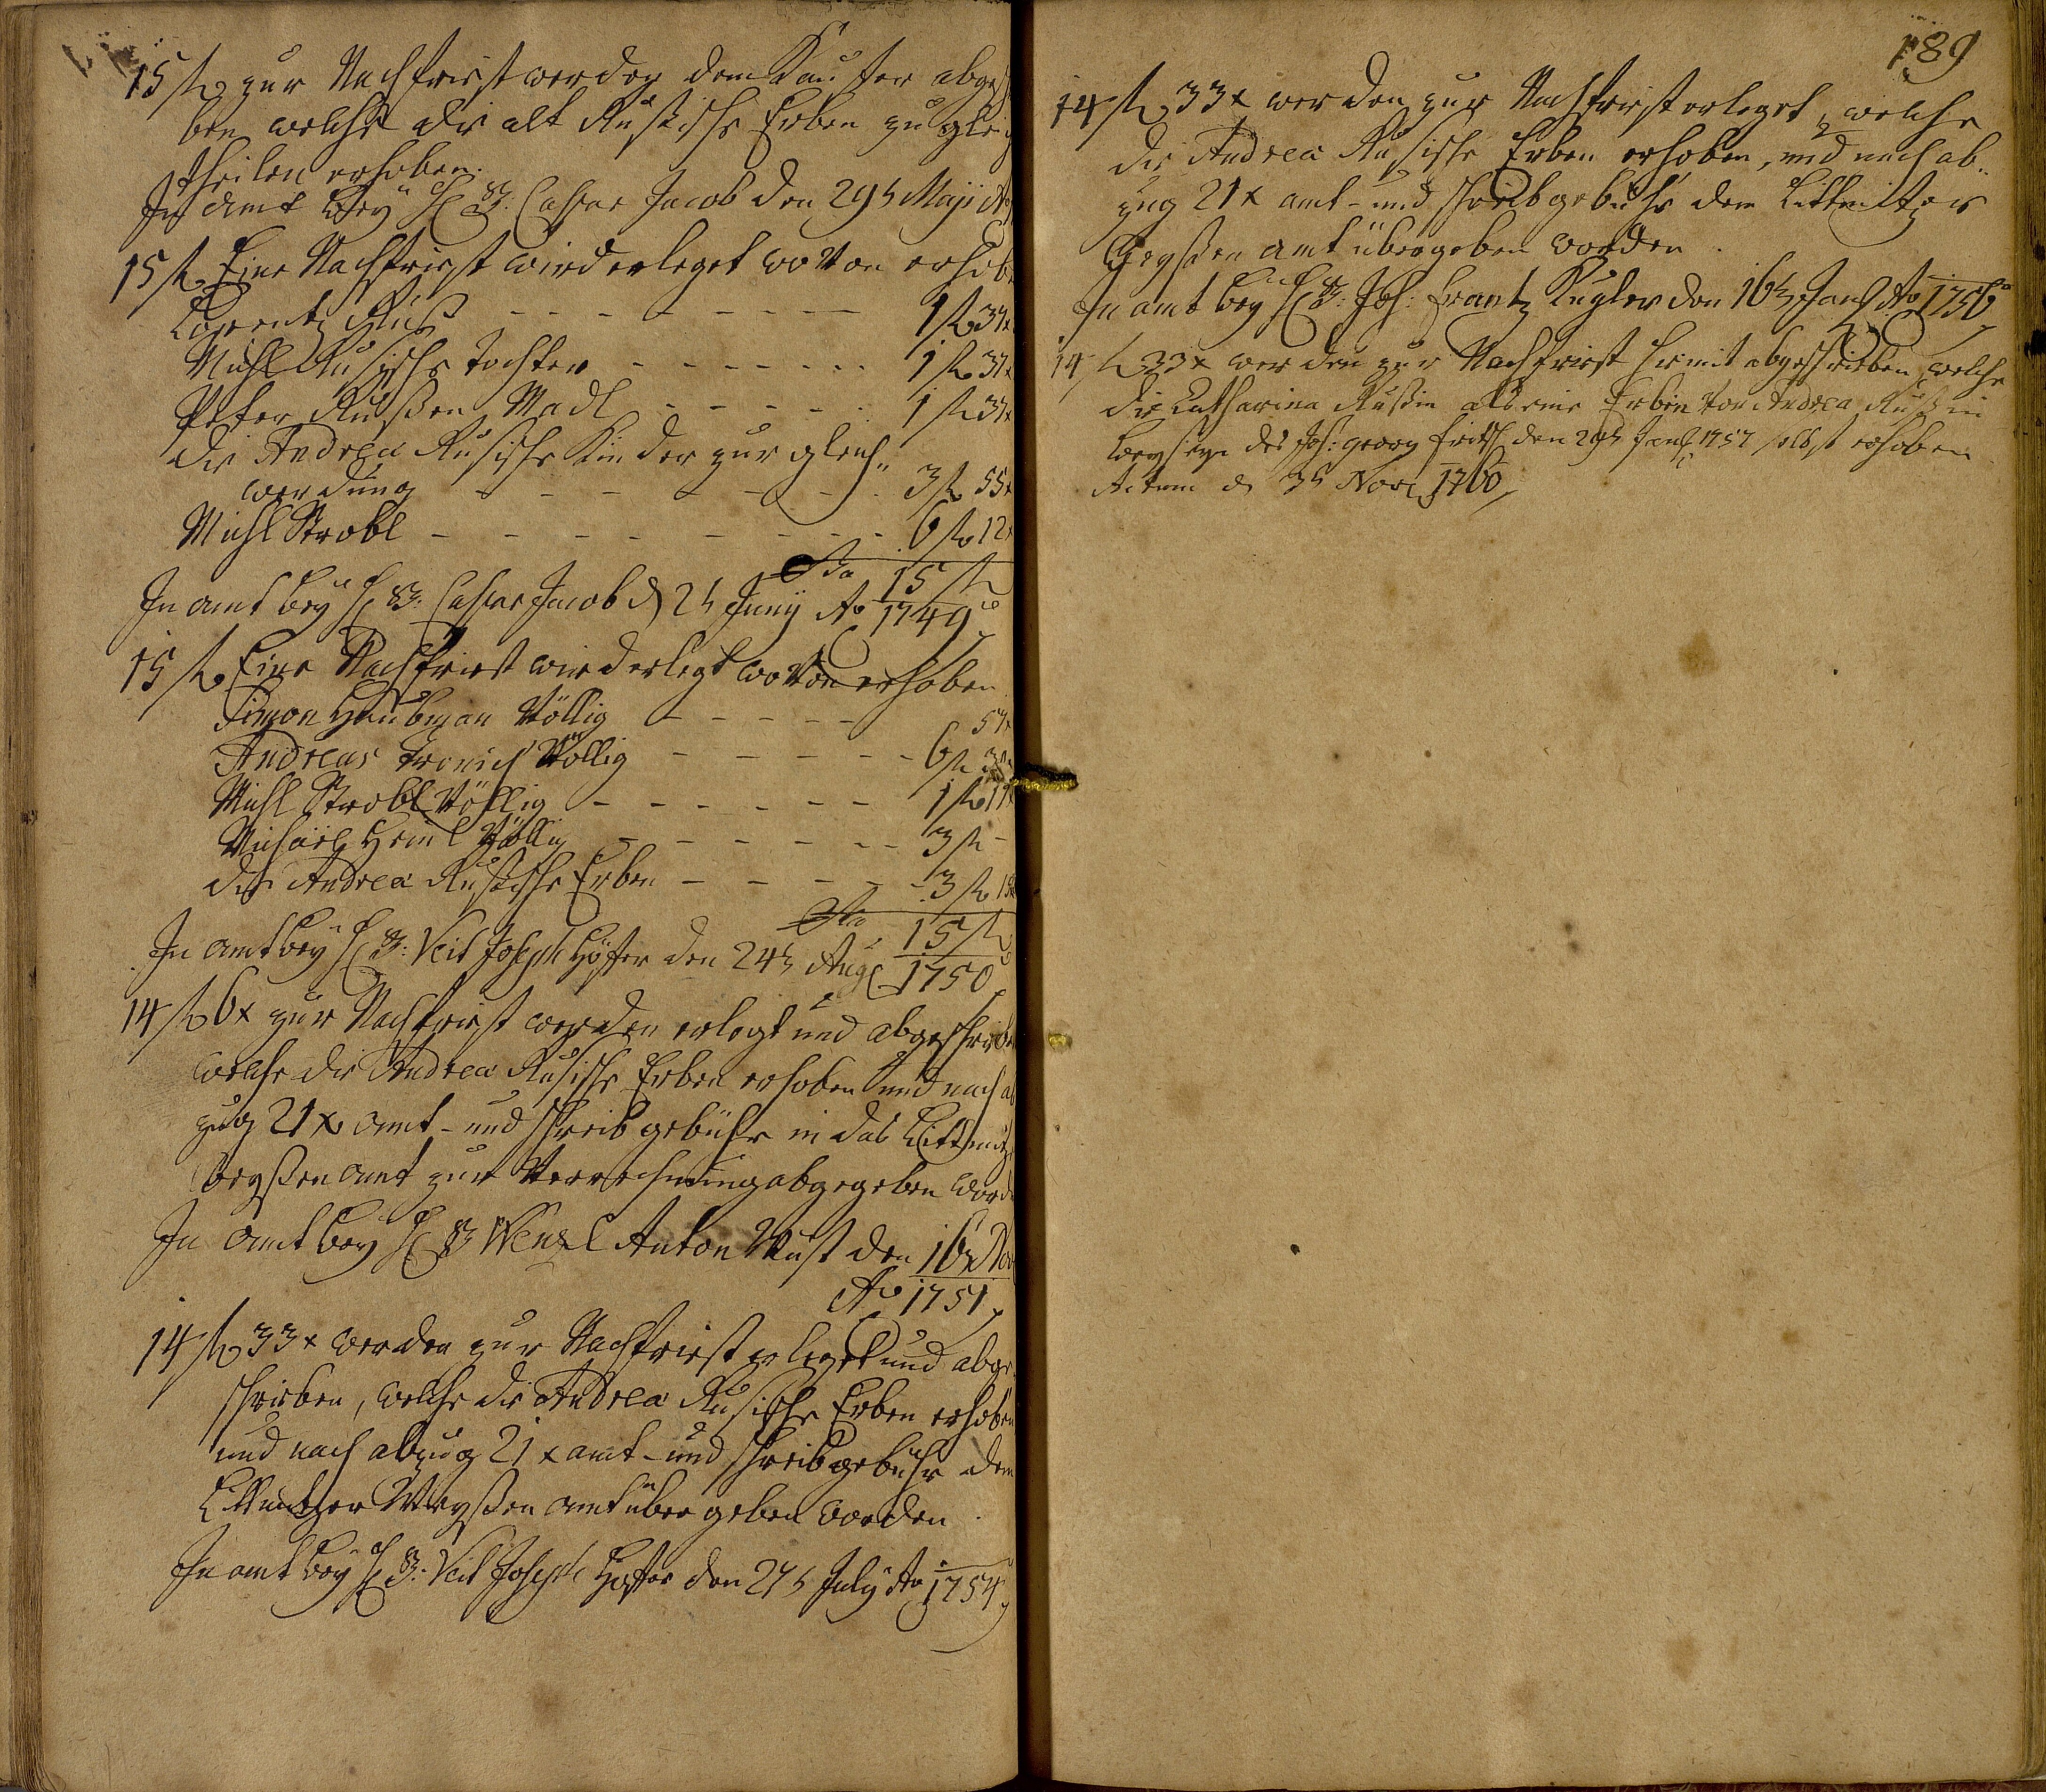 15 fl zur Nachfrist werden dem Kauffer abgeschrie
ben welche die alt Rußische Erben zu gleich
theilen erhoben.
In Amt bey H B: Caspar Jacob den 29t Maji Ao
15 fl Eine Nachfrist wird erleget wo von erhobe
Lorentz Ruß - - - - - - - - 1 fl 37 x
Michl Rusische Tochter - - - - - - - 1 fl 37 x
Peter Rußen Madl - - - - - 1 fl 37 x
die Andrea Rusische Kinder zur gleich
werdung - - - - - - - 3 fl 55 x
Michl Strobl - - - - - - - - 6 fl 12 x
Sa 15 fl
In amt bey H B: Caspar Jacob d 2t Junij Ao 1749
15 fl Eine Nachfrist wird erlegt wo von erhoben
Simon Haubman Völlig - - - - - 57 x
Andreas Völlig - - - - - 6 fl
Michl Strobl Völlig - - - - - - 1 fl 17 x
Michael Heinl Völlig - - - - - - 3 fl -
die Andrea Rußische Erben - - - - - 3 fl 15 x
Sa 15 fl
In amt bey H B: Veit Joseph Höfer den 24t Aug 1750
14 fl 6 x zur Nachfrist werden erlegt und abgeschrieben
welche die Andrea Rusische Erben erhoben und nach ab
zug 21 x amt- und schreib gebühr in das
Weyßen amt zur Verrechnung abgegeben worden
In amt bey H B Wenzl Anton Wust den 16t Nov
Ao 1751
14 fl 33 x werden zur Nachfrist erleget und abge
schrieben, welche die Andrea Rusische Erben erhoben
und nach abzug 21 x amt- und schreibgebühr dem
Weyßen amt übergeben worden.
In amt bey H B: Veit Joseph Höfer den 27t July Ao 1754
189
14 fl 33 x werden zur Nachfrist erleget, welche
die Andrea Rusische Erben erhoben, und nach ab-
zug 21 x amt- und schreibgebühr dem
Weyßen amt übergeben worden.
In amt bey H B: Joh: Frantz Kugler den 16t Jan Ao 1756
14 fl 33 x werden zur Nachfrist hiemit abgeschrieben, welche
die Catharina Rußin als eine Erbin von Andrea Rußin
beyseyn des Joh: Georg den 29t Jan 1757 selbst erhoben
Actum d 3t Nov 1760